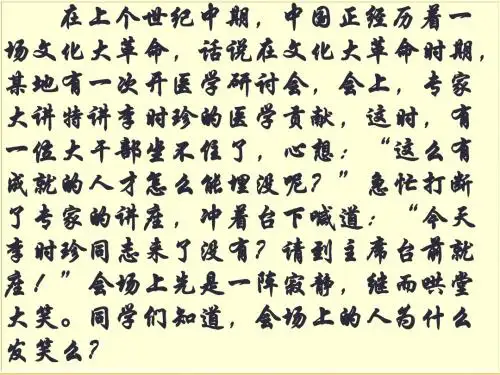 在上个世纪中期，中国正经历着一
场文化大革命，话说在文化大革命时期，
某地有一次开医学研讨会，会上，专家
大讲特讲李时珍的医学贡献，这时，有
一位大干部坐不住了，心想：“这么有
成就的人才怎么能埋没呢？”急忙打断
了专家的讲座，冲着台下喊道：“今天
李时珍同志来了没有？请到主席台前就
座！”会场上先是一阵寂静，继而哄堂
大笑。同学们知道，会场上的人为什么
发笑么？